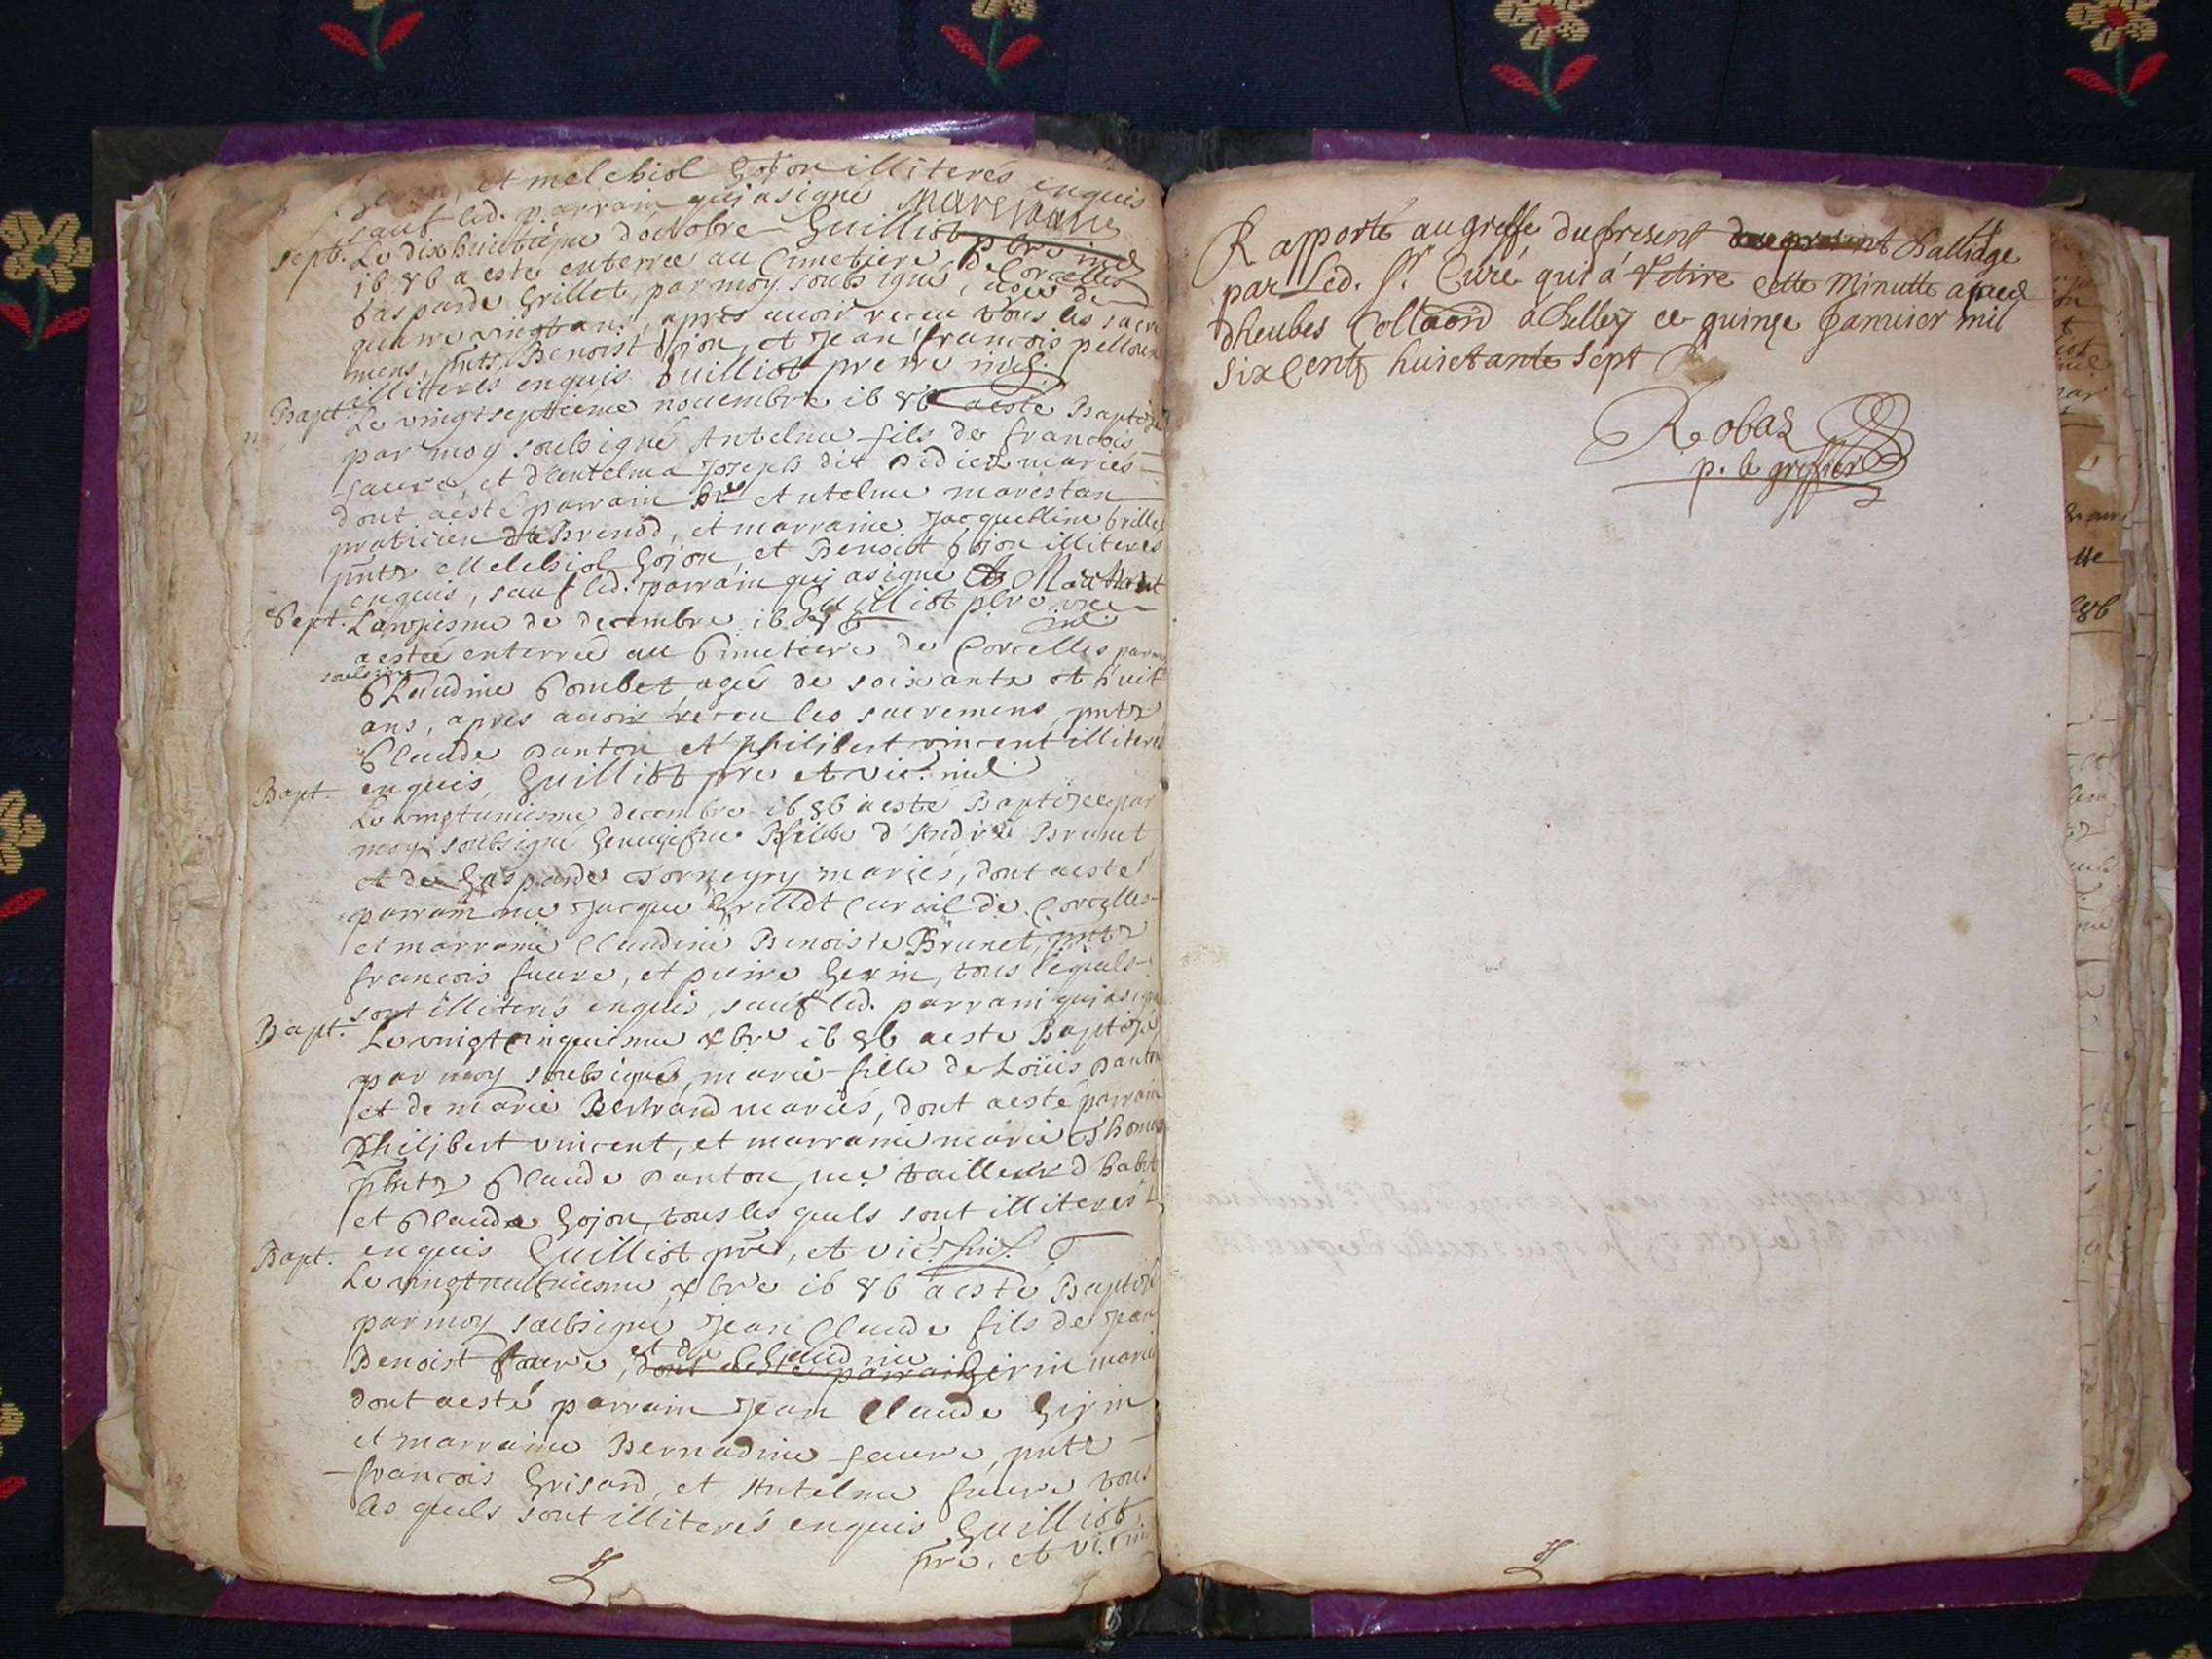 et melchiol Gojon illiterés enquis
sauf led. parrain qui a signé
Sept. Le dixhuictieme d'octobre Guilliot pbre
1686 a esté enterree au Cimetiere de Corcelles
Gasparde Grillet, par moy soubsigné, agée de
quatre vingt ans, apres avoir receu tous les sacre
mens, pnts Benoist Gojon, et Jean francois
illiteres enquis Guilliot pretre
Bapt. Le vingtseptieme novembre 1686 a esté Baptizé
par moy soubsigné Antelme fils de francois
faure, et d'Antelma Joseph dit Didier mariés
dont a esté parrain Antelme marestan
praticien de Brenod, et marraine Jacquelline Grillet
pnts Melchiol Gojon, et Benoist Gojon illiteres
enquis, sauf led. parrain qui a signé
Guilliot pbre
Sept. L'onziesme de decembre 1686
a estée enterrée au Cimetiere de Corcelles par moy
soubsigné
Claudine Combet agée de soixante et huit
ans, apres avoir receu les sacremens, pnts
Claude Panton et philibert vincent illiteres
enquis, Guilliot pre et vic.
Bapt.
Le vingtuniesme decembre 1686 a esté Baptizee par
moy soubsigné Genevefve fille d'André Brunet
et de Gasparde Sorneyry mariés, dont a esté
parrain me Jacque Grillet Curial de Corcelles
et marraine Claudine Benoiste Brunet, pnts
francois faure, et pierre Gerin, tous lequels
sont illiterés enquis, sauf led. parrain qui a signé
Bapt. Le vingtcinquiesme xbre 1686 a esté Baptizé
par moy soubsigné, marie fille de Loüis Panton
et de marie Bertrand mariés, dont a esté parrain
Philibert vincent, et marraine marie Thomas
pnts Claude Panton, me tailleur d'habit
et Claude Gojon, tous les quels sont illiteres
enquis Guilliot pre, et vic.
Bapt.
Le vingthuictiesme xbre 1686 a esté Baptizé
par moy soubsigné Jean Claude fils de Jean
et de Claudine
Benoist faure, dont a esté parrain Girin mariés
dont a esté parrain Jean Claude Girin
et marraine Bernadine faure, pnts
francois Grisard, et Antelme faure tous
les quels sont illiterés enquis Guilliot
pre, et vic.
Rapporté au greffe du present Balliage
par Led. Sr. Curé qui a Retiré cette Minutte apres
dheubes Collaõn a Belley ce quinze Janvier mil
six cents huictante sept
Robaz
p. le greffier